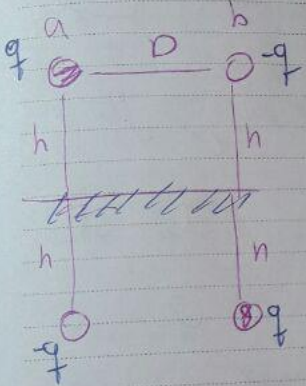 a b
q D -q
h h
h h
-q q